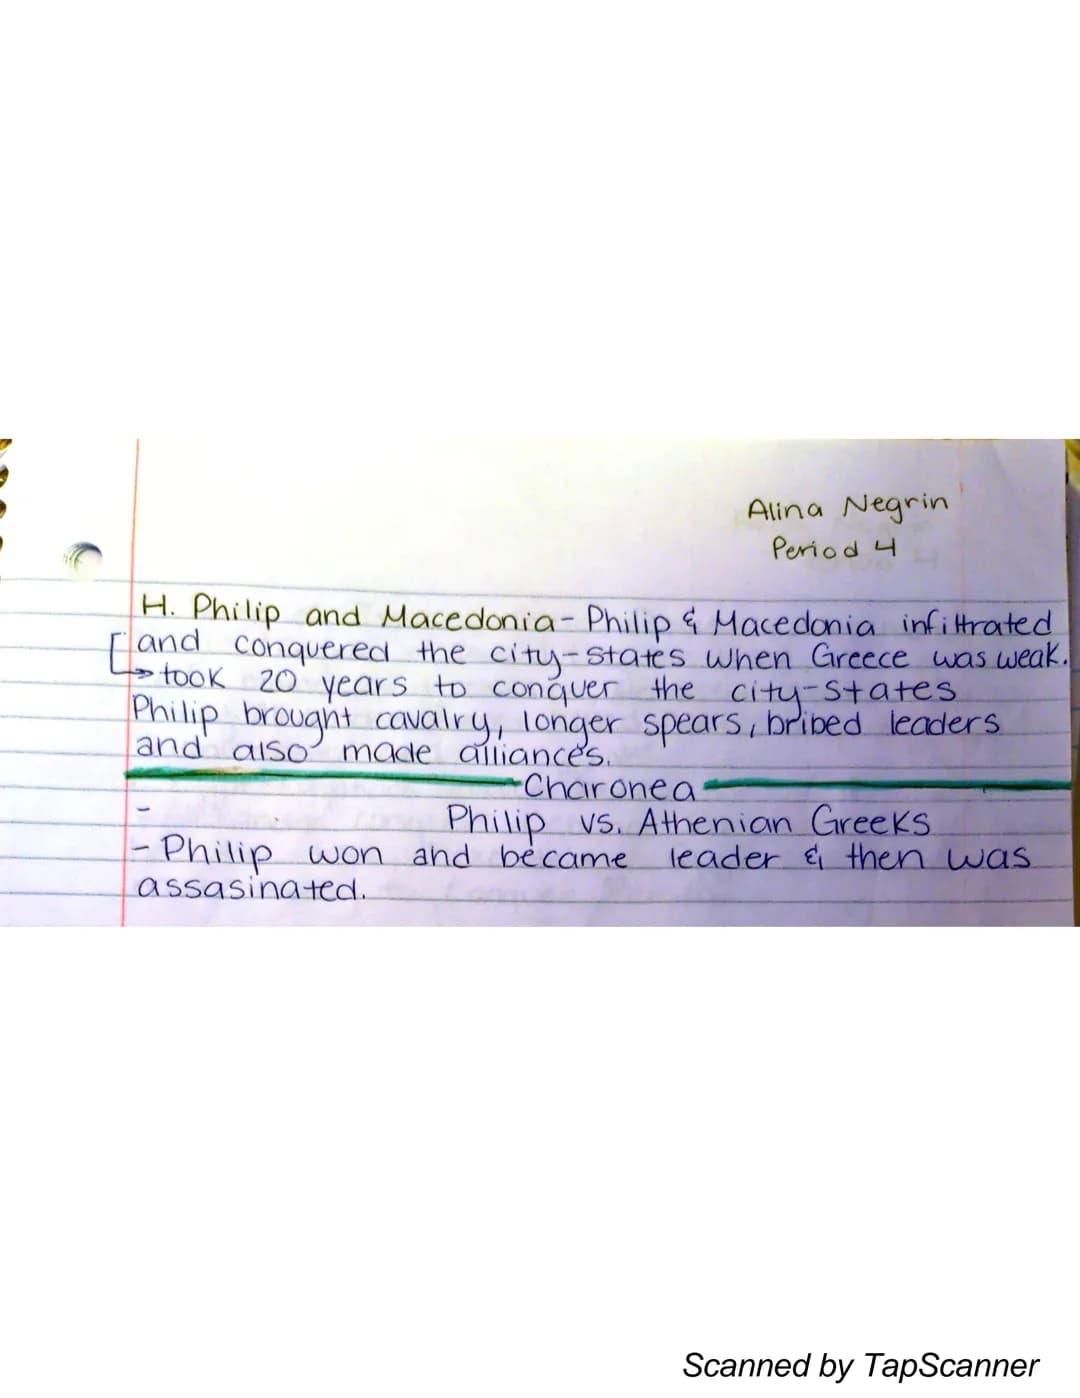 Alina Negrin
Period 4
H. Philip and Macedonia- Philip & Macedonia infiltrated
and conquered the city-states when Greece was weak.
→ took 20 years to conquer the city-states
Philip brought cavalry, longer spears, bribed leaders
and also made alliances.
Charonea
-
Philip vs. Athenian Greeks
- Philip won and became leader & then was
assasinated.
Scanned by TapScanner